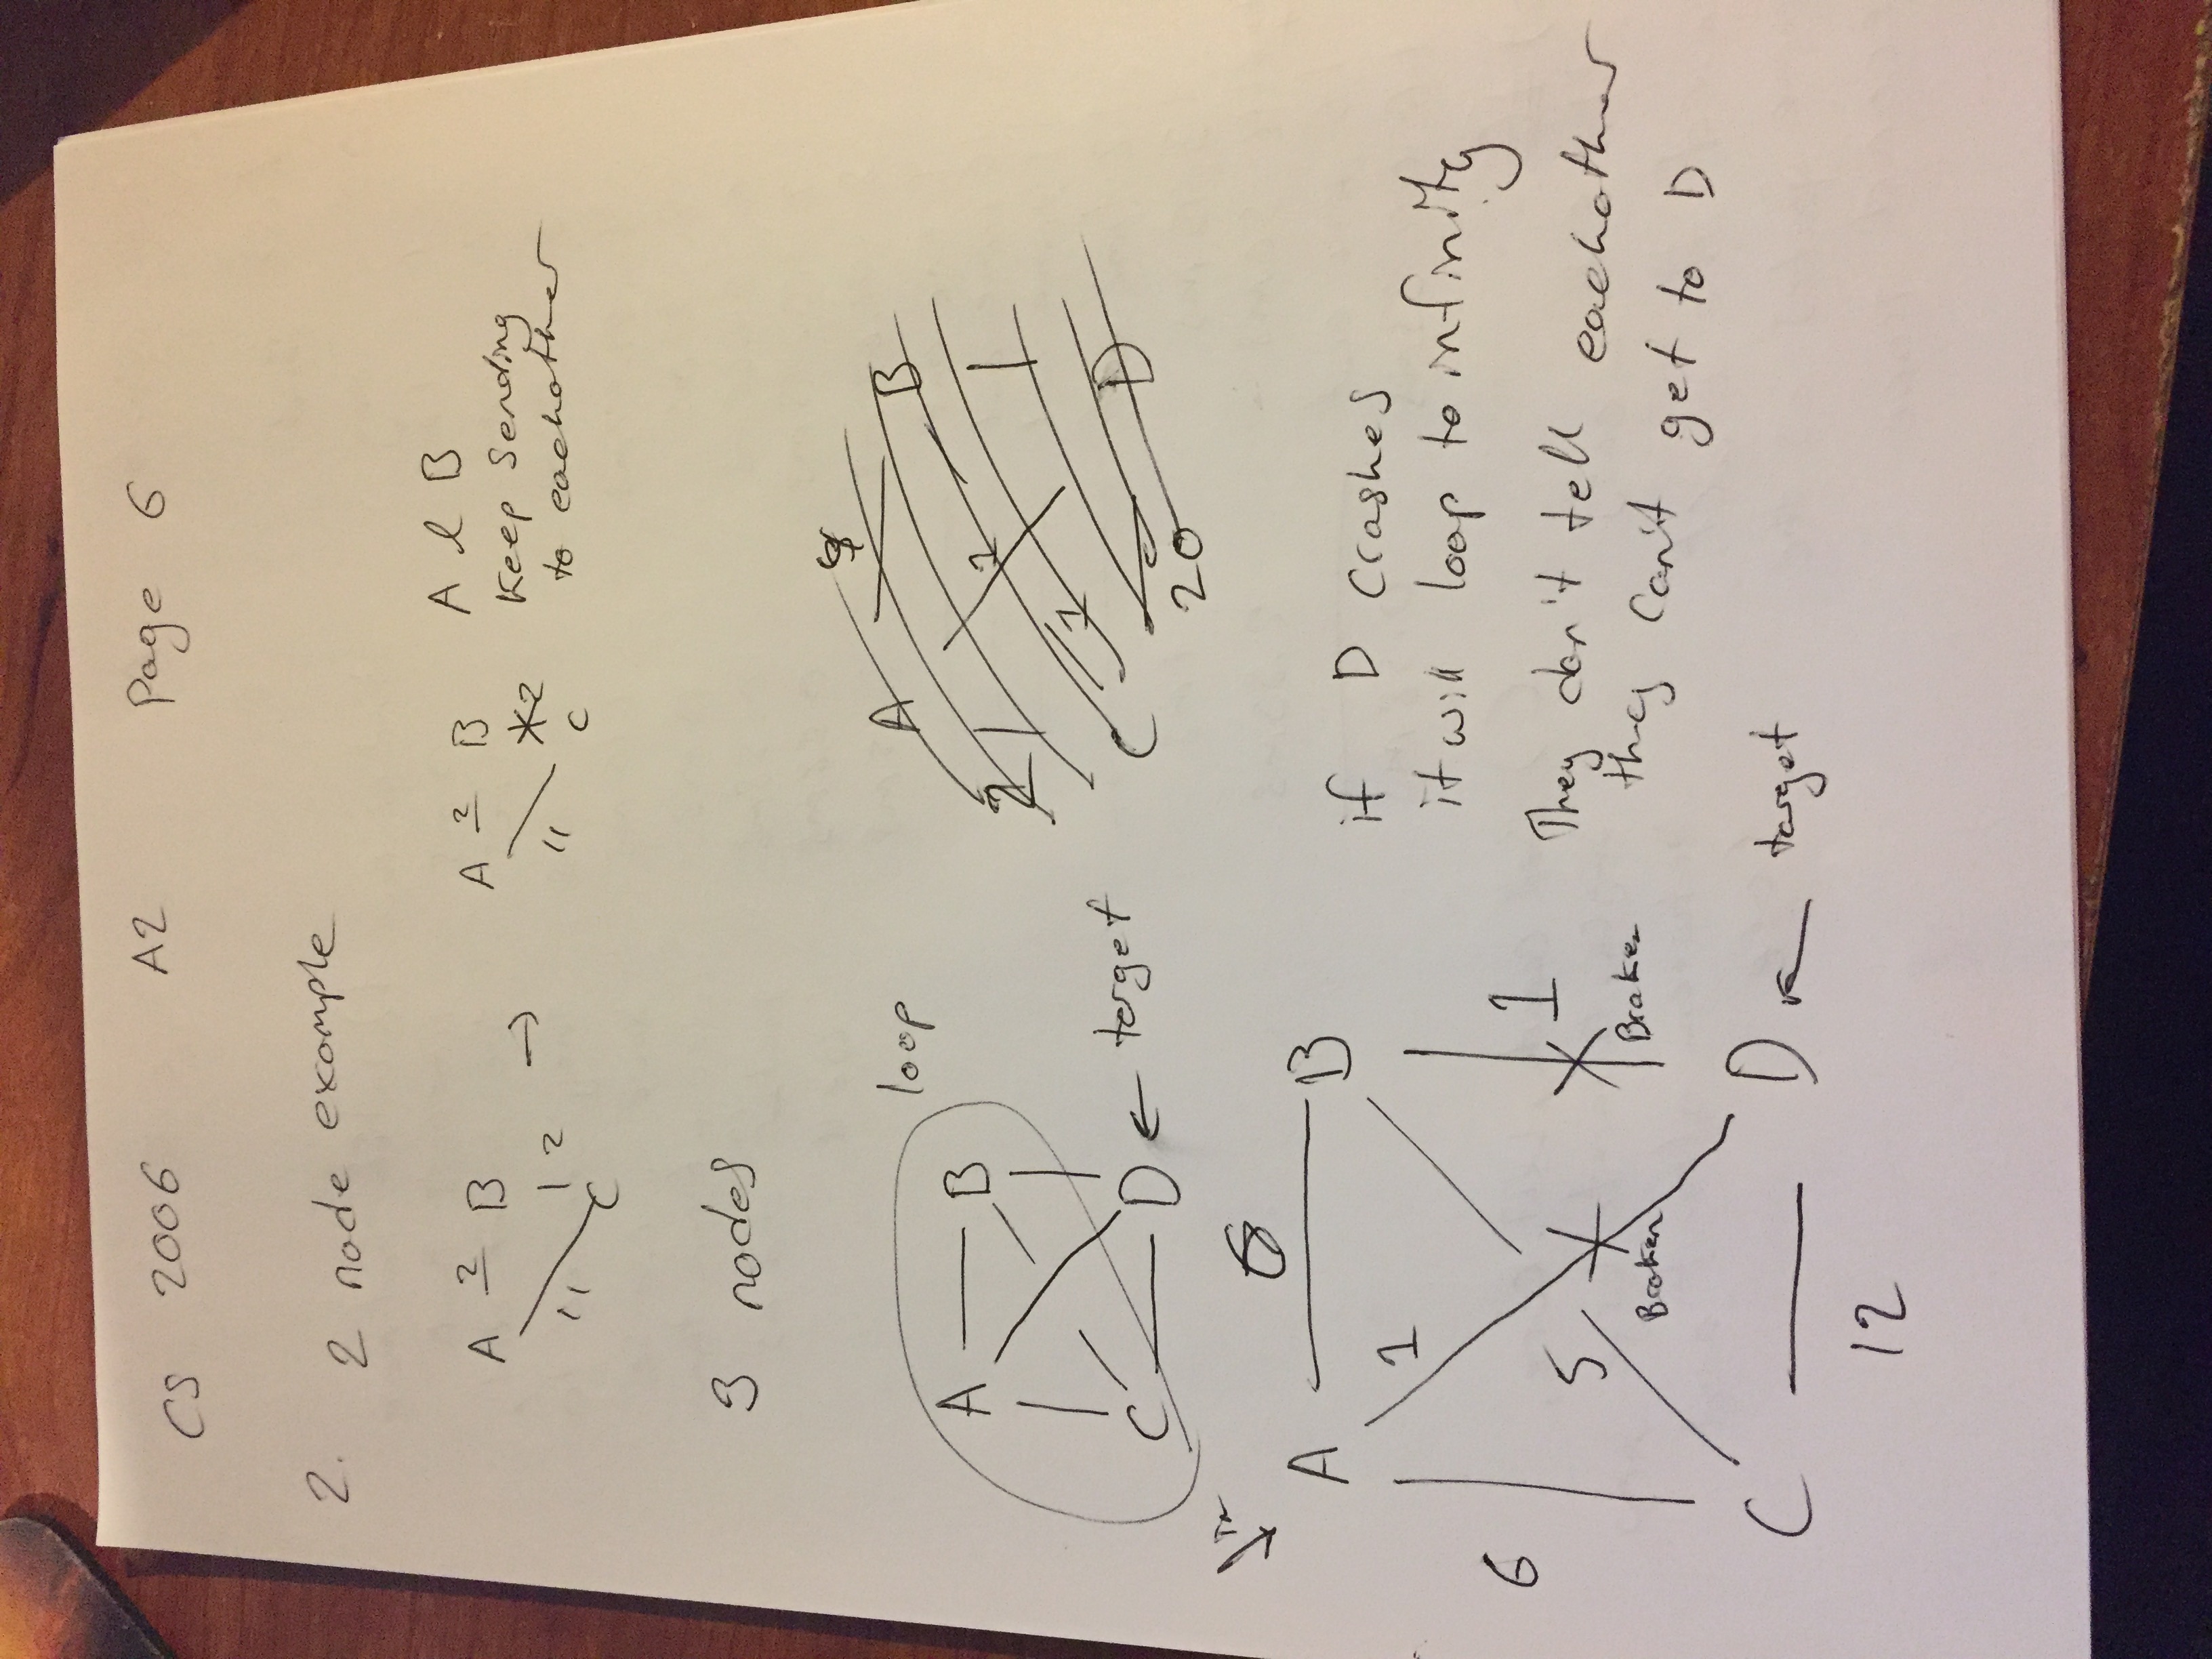 CS 2006 A2 Page 6
2. 2 node example
A 2 B
11 2
C
→
A 2 B
11 2
C
A & B
Keep Sending
to eachother
3 nodes
loop
A B
C D ← target
A B
2 1
C D
20
A 6 B
1
6 5 1
Broken Broken
C D ← target
12
if D crashes
it will loop to infinity
They don't tell eachother
they can't get to D